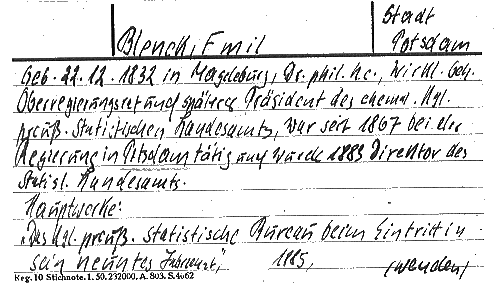 Stadt
Blenck, Emil
Potsdam
Geb. 22.12.1832 in Magdeburg, Dr. phil. h.c., Wirkl. Geh.
Oberregierungsrat und späterer Präsident des ehem. Kgl.
preuß. Statistischen Landesamts, war seit 1867 bei der
Regierung in Potsdam tätig und wurde 1883 Direktor des
Statist. Landesamts.
Hauptwerke:
"Das Kgl. preuß. statistische Bureau beim Eintritt in
sein neuntes Jahrzehnt", 1885,
(wenden)
Reg. 10 Stichnote. 1. 50. 232000. A. 803. S. 4062